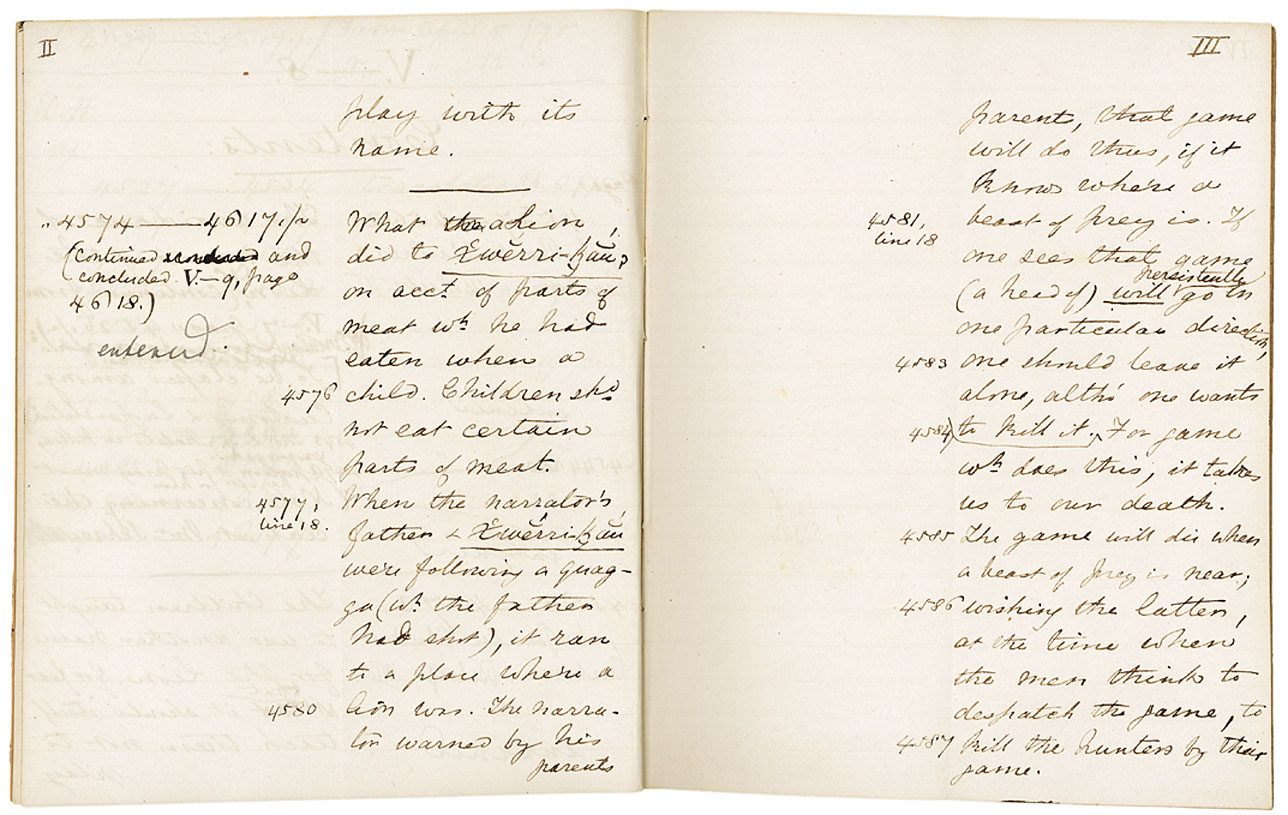 II
play with its
name.
4574 — 4617 1/2
(continued concluded and
concluded V.—9, page
4618.)
entered.
What the a Lion,
did to !kwérri-|kãũ,
on acct. of parts of
meat wh. he had
eaten when a
4576 child. Children shd.
not eat certain
parts of meat.
4577, line 18. When the narrator's
father & !kwérri-|kãũ
were following a quag-
ga (wh. the father
had shot), it ran
to a place where a
4580 lion was. The narra-
tor warned by his
parents
III
parent, that game
will do thus, if it
knows where a
4581, line 18 beast of prey is. If
one sees that game
(a head of) will persistently go in
one particular direction,
4583 one should leave it
alone, altho' one wants
4584) to kill it. For game
wh. does this, it takes
us to our death.
4585 The game will die when
a beast of prey is near;
4586 wishing the latter,
at the time when
the men think to
despatch the game, to
4587 kill the hunters by their
game.